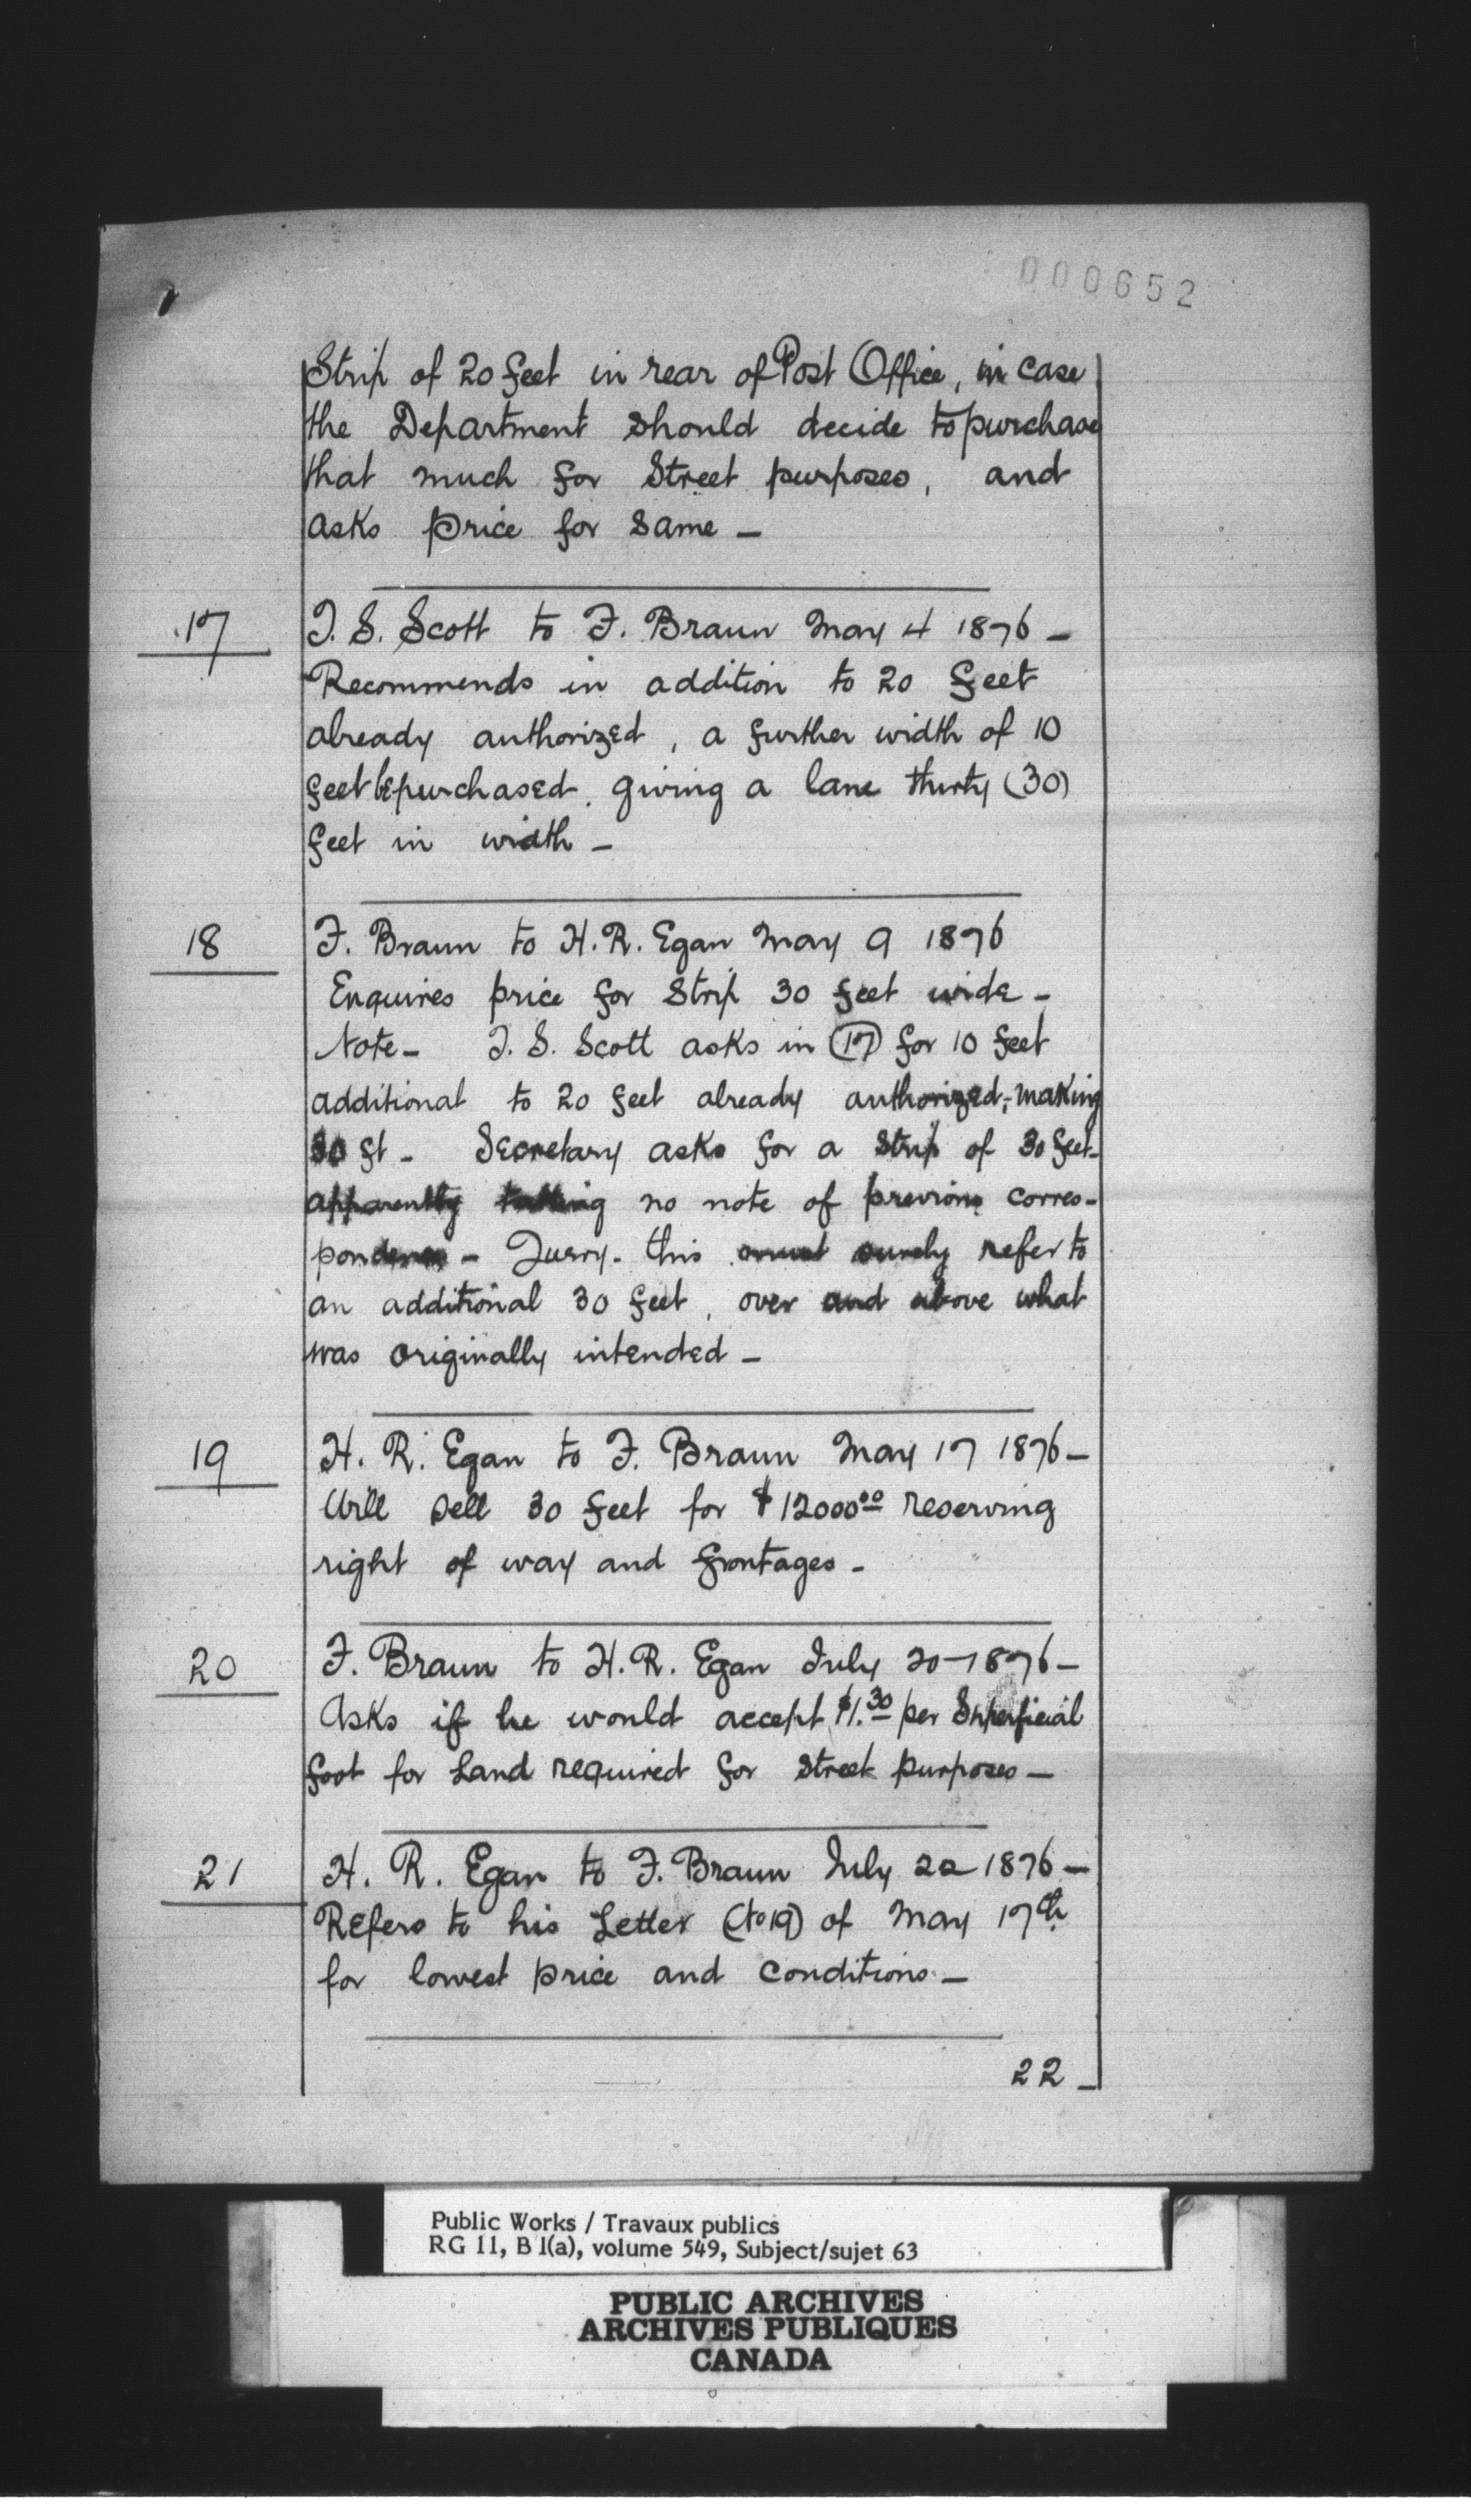 000652
Strip of 20 feet in rear of Post Office, in case
the Department should decide to purchase
that much for Street purposes, and
asks price for same —
17
T. S. Scott to F. Braun May 4 1876 —
Recommends in addition to 20 feet
already authorized, a further width of 10
feet be purchased, giving a lane thirty (30)
feet in width —
18
F. Braun to H. R. Egan May 9 1876
Enquires price for Strip 30 feet wide —
Note — T. S. Scott asks in (17) for 10 feet
additional to 20 feet already authorized, making
30 ft — Secretary asks for a Strip of 30 feet —
apparently taking no note of previous corres-
pondence — Query — this must surely refer to
an additional 30 feet, over and above what
was originally intended —
19
H. R. Egan to F. Braun May 17 1876 —
Will sell 30 feet for $12000.00 reserving
right of way and frontages —
20
F. Braun to H. R. Egan July 20 — 1876 —
Asks if he would accept $1.30 per Superficial
foot for Land required for street purposes —
21
H. R. Egan to F. Braun July 22 1876 —
Refers to his Letter (to 19) of May 17th
for lowest price and conditions —
22 —
Public Works / Travaux publics
RG 11, B 1(a), volume 549, Subject/sujet 63
PUBLIC ARCHIVES
ARCHIVES PUBLIQUES
CANADA